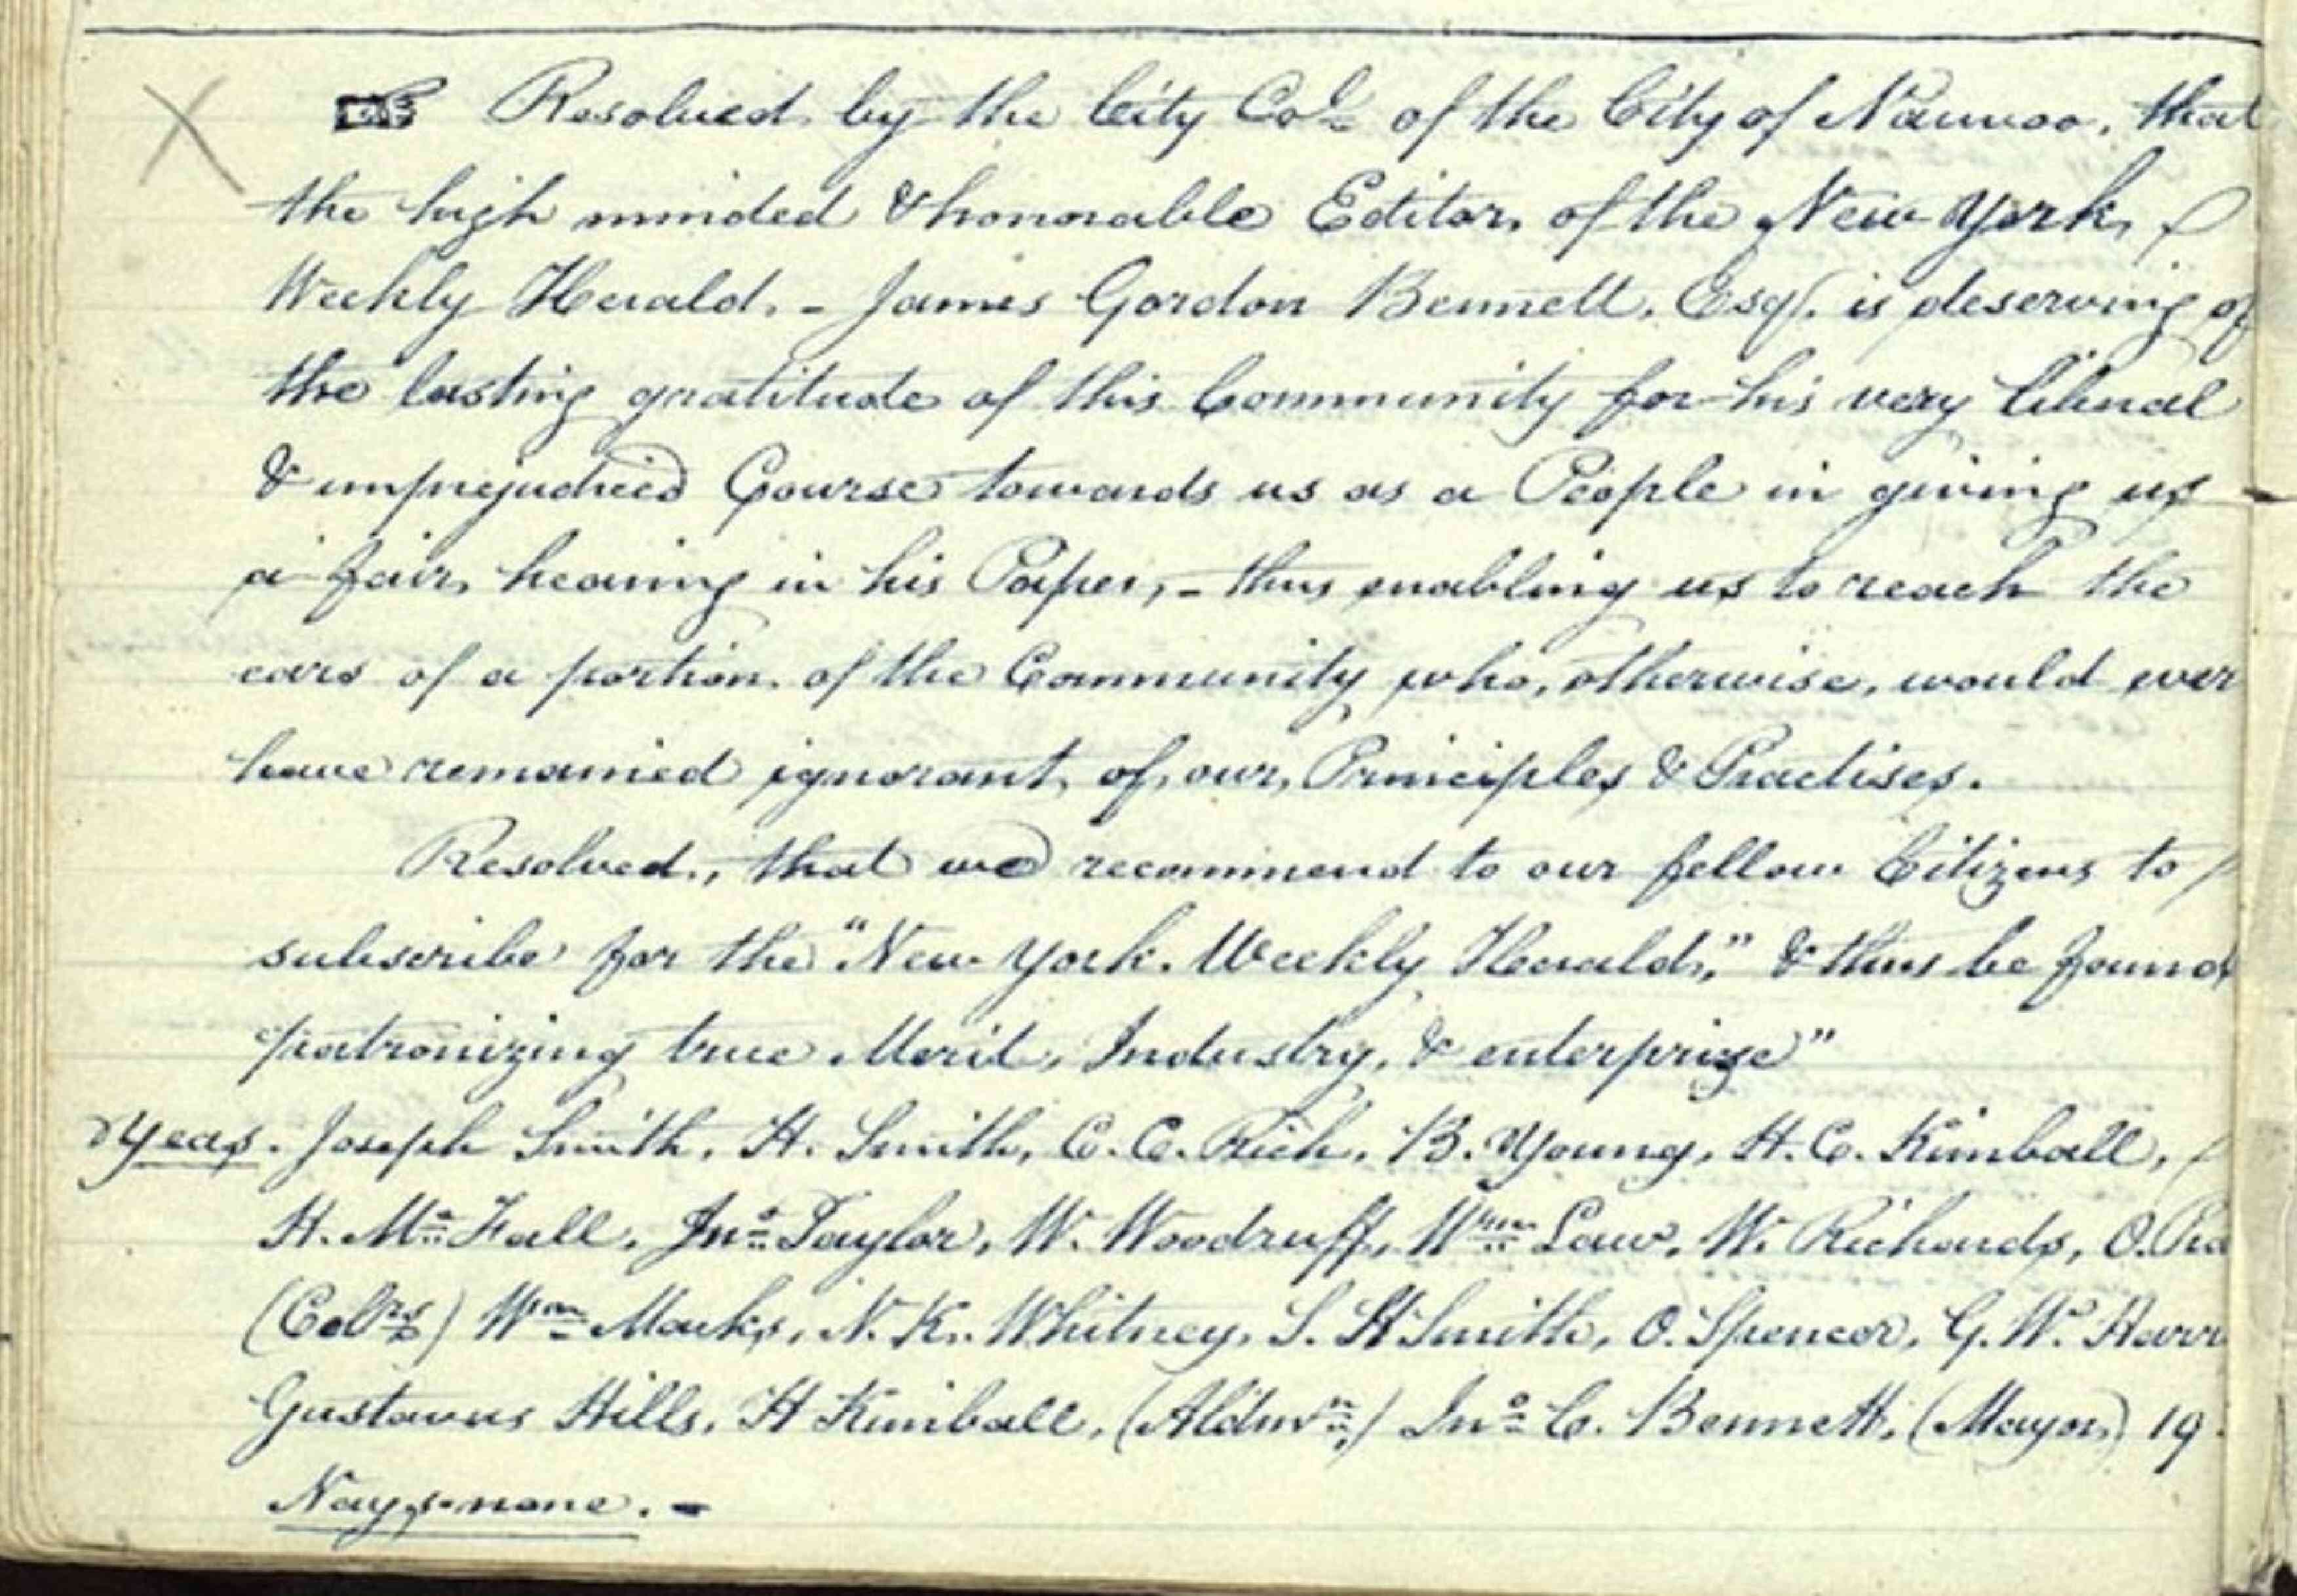 Resolved by the City Col of the City of Nauvoo, that
the high minded & honorable Editor, of the New York,
Weekly Herald, - James Gordon Bennett, Esqr. is deserving of
the lasting gratitude of this Community for his very liberal
& unprejudiced Course towards us as a People in giving us
a fair, hearing in his Paper, - thus enabling us to reach the
ears of a portion of the Community who, otherwise, would ever
have remained ignorant, of, our, Principles & Practises.
Resolved, that we recommend to our fellow Citizens to
subscribe for the "New York. Weekly Herald," & thus be found
patronizing true Merit, Industry, & enterprize"
Yeas. Joseph Smith, H. Smith, C. C. Rich, B. Young, H. C. Kimball,
H. Mc Fall, Jno Taylor, W. Woodruff, Wm Law, W. Richards, O.
(Colrs) Wm Marks, N. K. Whitney, S. H Smith, O. Spencer, G. W. Harr
Gustavus Hills, H Kimball, (Aldmn) Jno C. Bennett, (Mayor) 19.
Nays, none. -